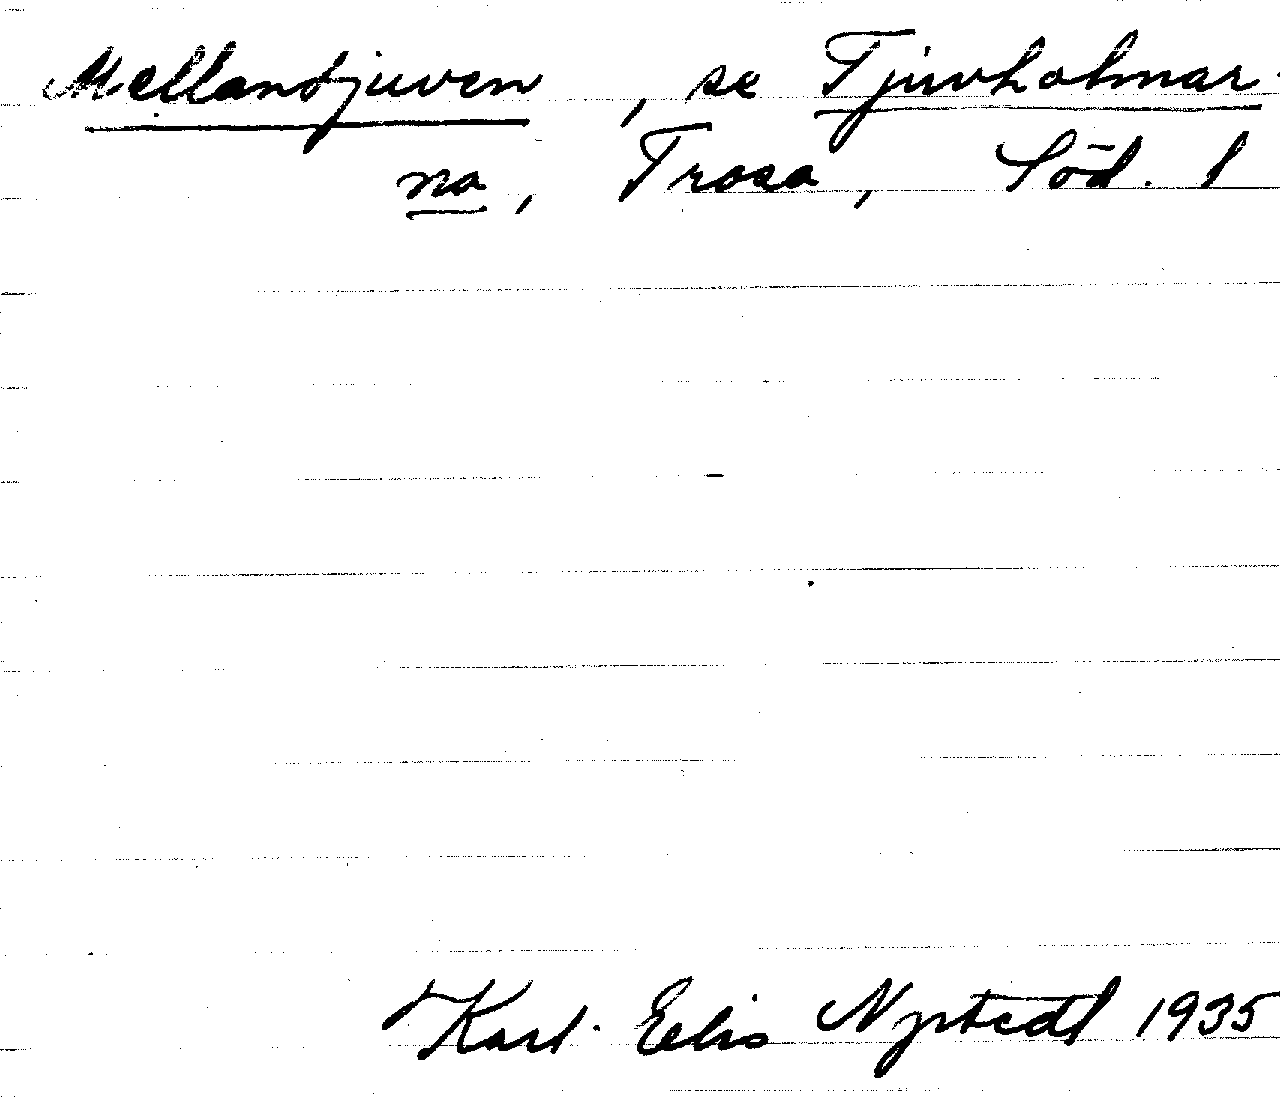 Mellandjuven, se Tjuvholmar-
na, Trosa, Söd. l
Karl Elis Nystedt 1935